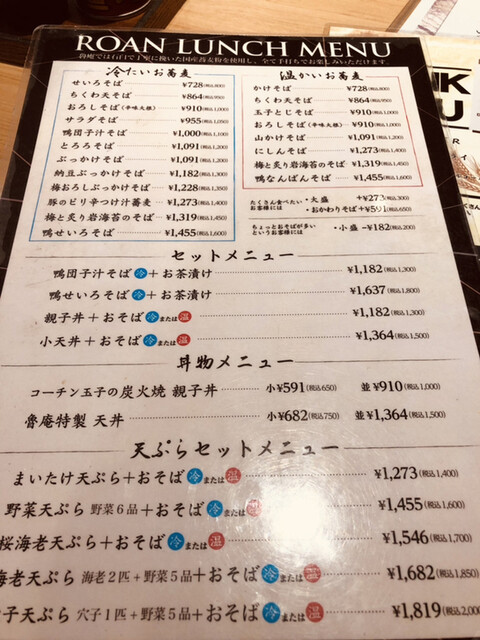 ROAN LUNCH MENU
魯庵では石臼で丁寧に挽いた国産蕎麦粉を使用し、全て手打ちでお楽しみいただけます。
冷たいお蕎麦
せいろそば ¥728(税込800)
ちくわ天そば ¥864(税込950)
おろしそば(辛味大根) ¥910(税込1,000)
サラダそば ¥955(税込1,050)
鴨団子汁そば ¥1,000(税込1,100)
とろろそば ¥1,091(税込1,200)
ぶっかけそば ¥1,091(税込1,200)
納豆ぶっかけそば ¥1,182(税込1,300)
梅おろしぶっかけそば ¥1,228(税込1,350)
豚のピリ辛つけ汁蕎麦 ¥1,273(税込1,400)
梅と炙り岩海苔のそば ¥1,319(税込1,450)
鴨せいろそば ¥1,455(税込1,600)
温かいお蕎麦
かけそば ¥728(税込800)
ちくわ天そば ¥864(税込950)
玉子とじそば ¥910(税込1,000)
おろしそば(辛味大根) ¥910(税込1,000)
山かけそば ¥1,091(税込1,200)
にしんそば ¥1,273(税込1,400)
梅と炙り岩海苔そば ¥1,319(税込1,450)
鴨なんばんそば ¥1,455(税込1,600)
たくさん食べたいお客様には
・大盛 +¥273(税込300)
・おかわりそば+¥591(税込650)
ちょっとおそばが多いというお客様には
・小盛 −¥182(税込200)
セットメニュー
鴨団子汁そば冷+お茶漬け ¥1,182(税込1,300)
鴨せいろそば冷+お茶漬け ¥1,637(税込1,800)
親子丼+おそば冷または温 ¥1,182(税込1,300)
小天丼+おそば冷または温 ¥1,364(税込1,500)
丼物メニュー
コーチン玉子の炭火焼 親子丼 小¥591(税込650) 並¥910(税込1,000)
魯庵特製 天丼 小¥682(税込750) 並¥1,364(税込1,500)
天ぷらセットメニュー
まいたけ天ぷら+おそば冷または温 ¥1,273(税込1,400)
野菜天ぷら 野菜6品+おそば冷または温 ¥1,455(税込1,600)
桜海老天ぷら+おそば冷または温 ¥1,546(税込1,700)
海老天ぷら 海老2匹+野菜5品+おそば冷または温 ¥1,682(税込1,850)
穴子天ぷら 穴子1匹+野菜5品+おそば冷または温 ¥1,819(税込2,000